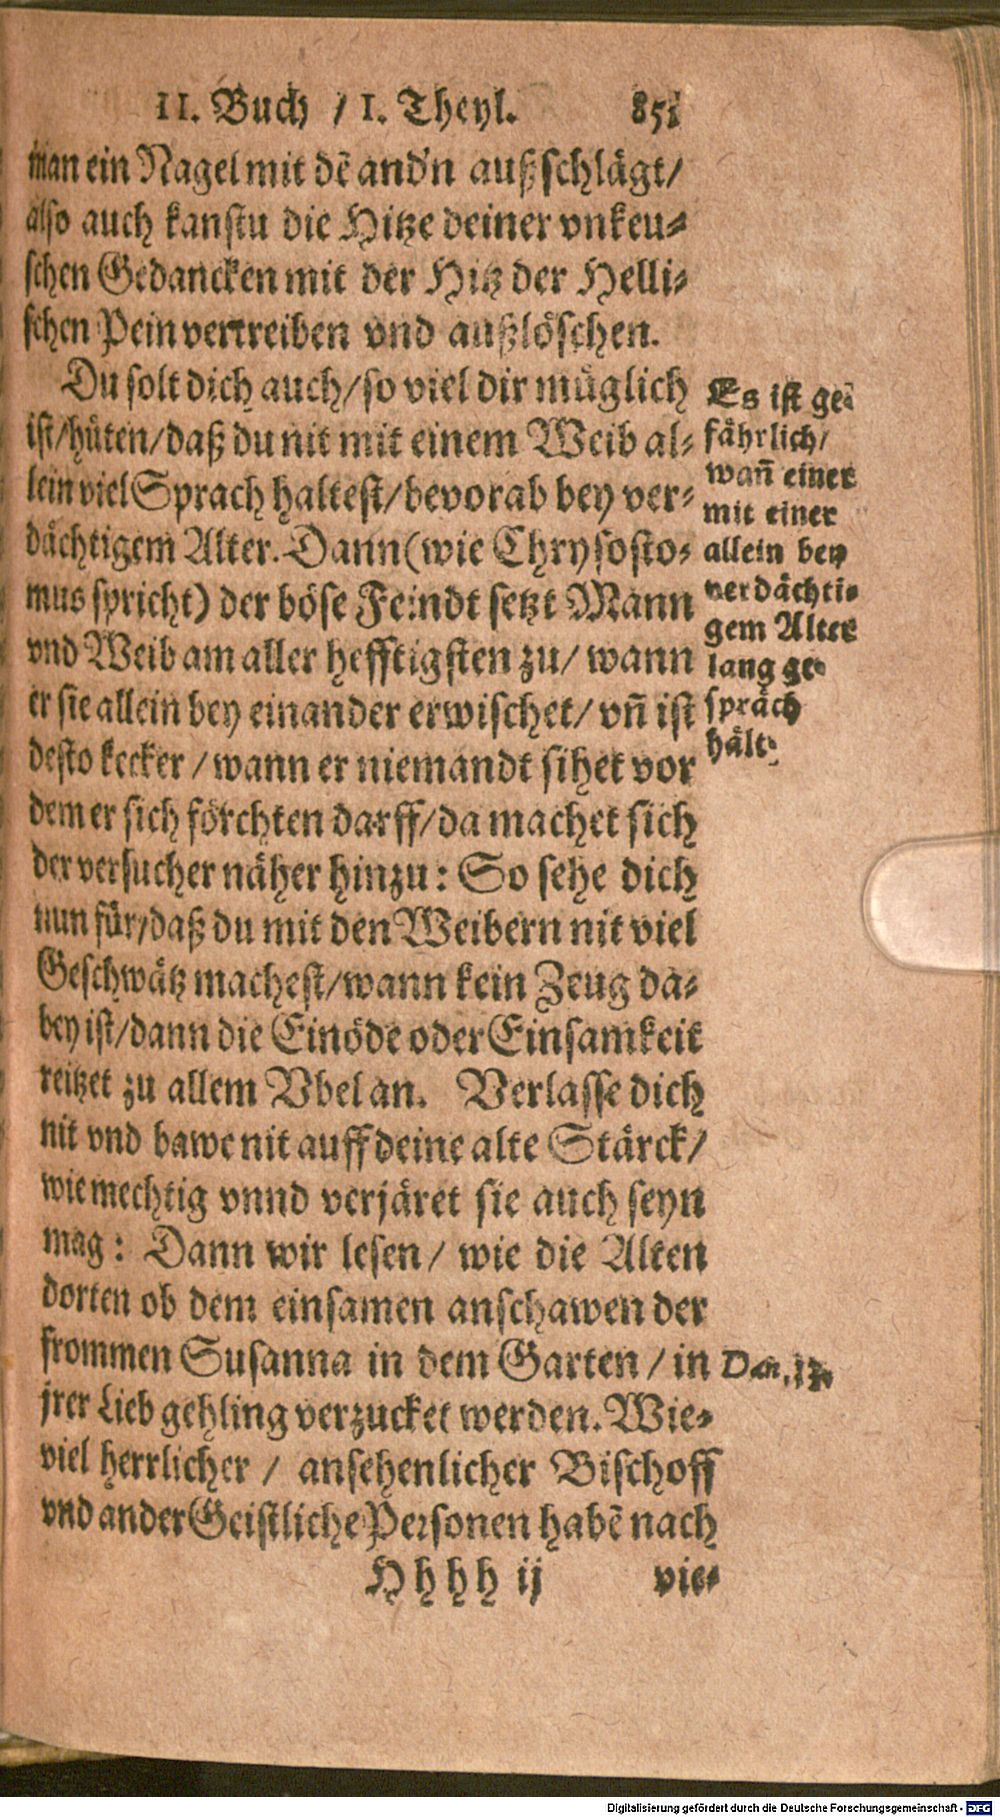 II. Buch / I. Theyl. 851
man ein Nagel mit dẽ and'n außschlägt/
also auch kanstu die Hitze deiner vnkeu-
schen Gedancken mit der Hitz der Helli-
schen Pein vertreiben vnd außlöschen.
Du solt dich auch/so viel dir müglich
ist/hüten/daß du nit mit einem Weib al-
lein viel Sprach haltest/bevorab bey ver-
dächtigem Alter. Dann (wie Chrysosto-
mus spricht) der böse Feindt setzt Mann
vnd Weib am aller hefftigsten zu/ wann
er sie allein bey einander erwischet/ vñ ist
desto kecker / wann er niemandt sihet vor
dem er sich förchten darff/da machet sich
der versucher näher hinzu: So sehe dich
nun für/daß du mit den Weibern nit viel
Geschwätz machest/wann kein Zeug da-
bey ist/dann die Einöde oder Einsamkeit
reitzet zu allem Vbel an. Verlasse dich
nit vnd bawe nit auff deine alte Stärck/
wie mechtig vnnd verjäret sie auch seyn
mag: Dann wir lesen/ wie die Alten
dorten ob dem einsamen anschawen der
frommen Susanna in dem Garten / in
jrer Lieb gehling verzucket werden. Wie-
viel herrlicher / ansehenlicher Bischoff
vnd ander Geistliche Personen habẽ nach
Hhhh ij vie-
Es ist ge-
fährlich/
wañ einer
mit einer
allein bey
verdächti-
gem Alter
lang ge-
spräch
hält.
Dan. 13.